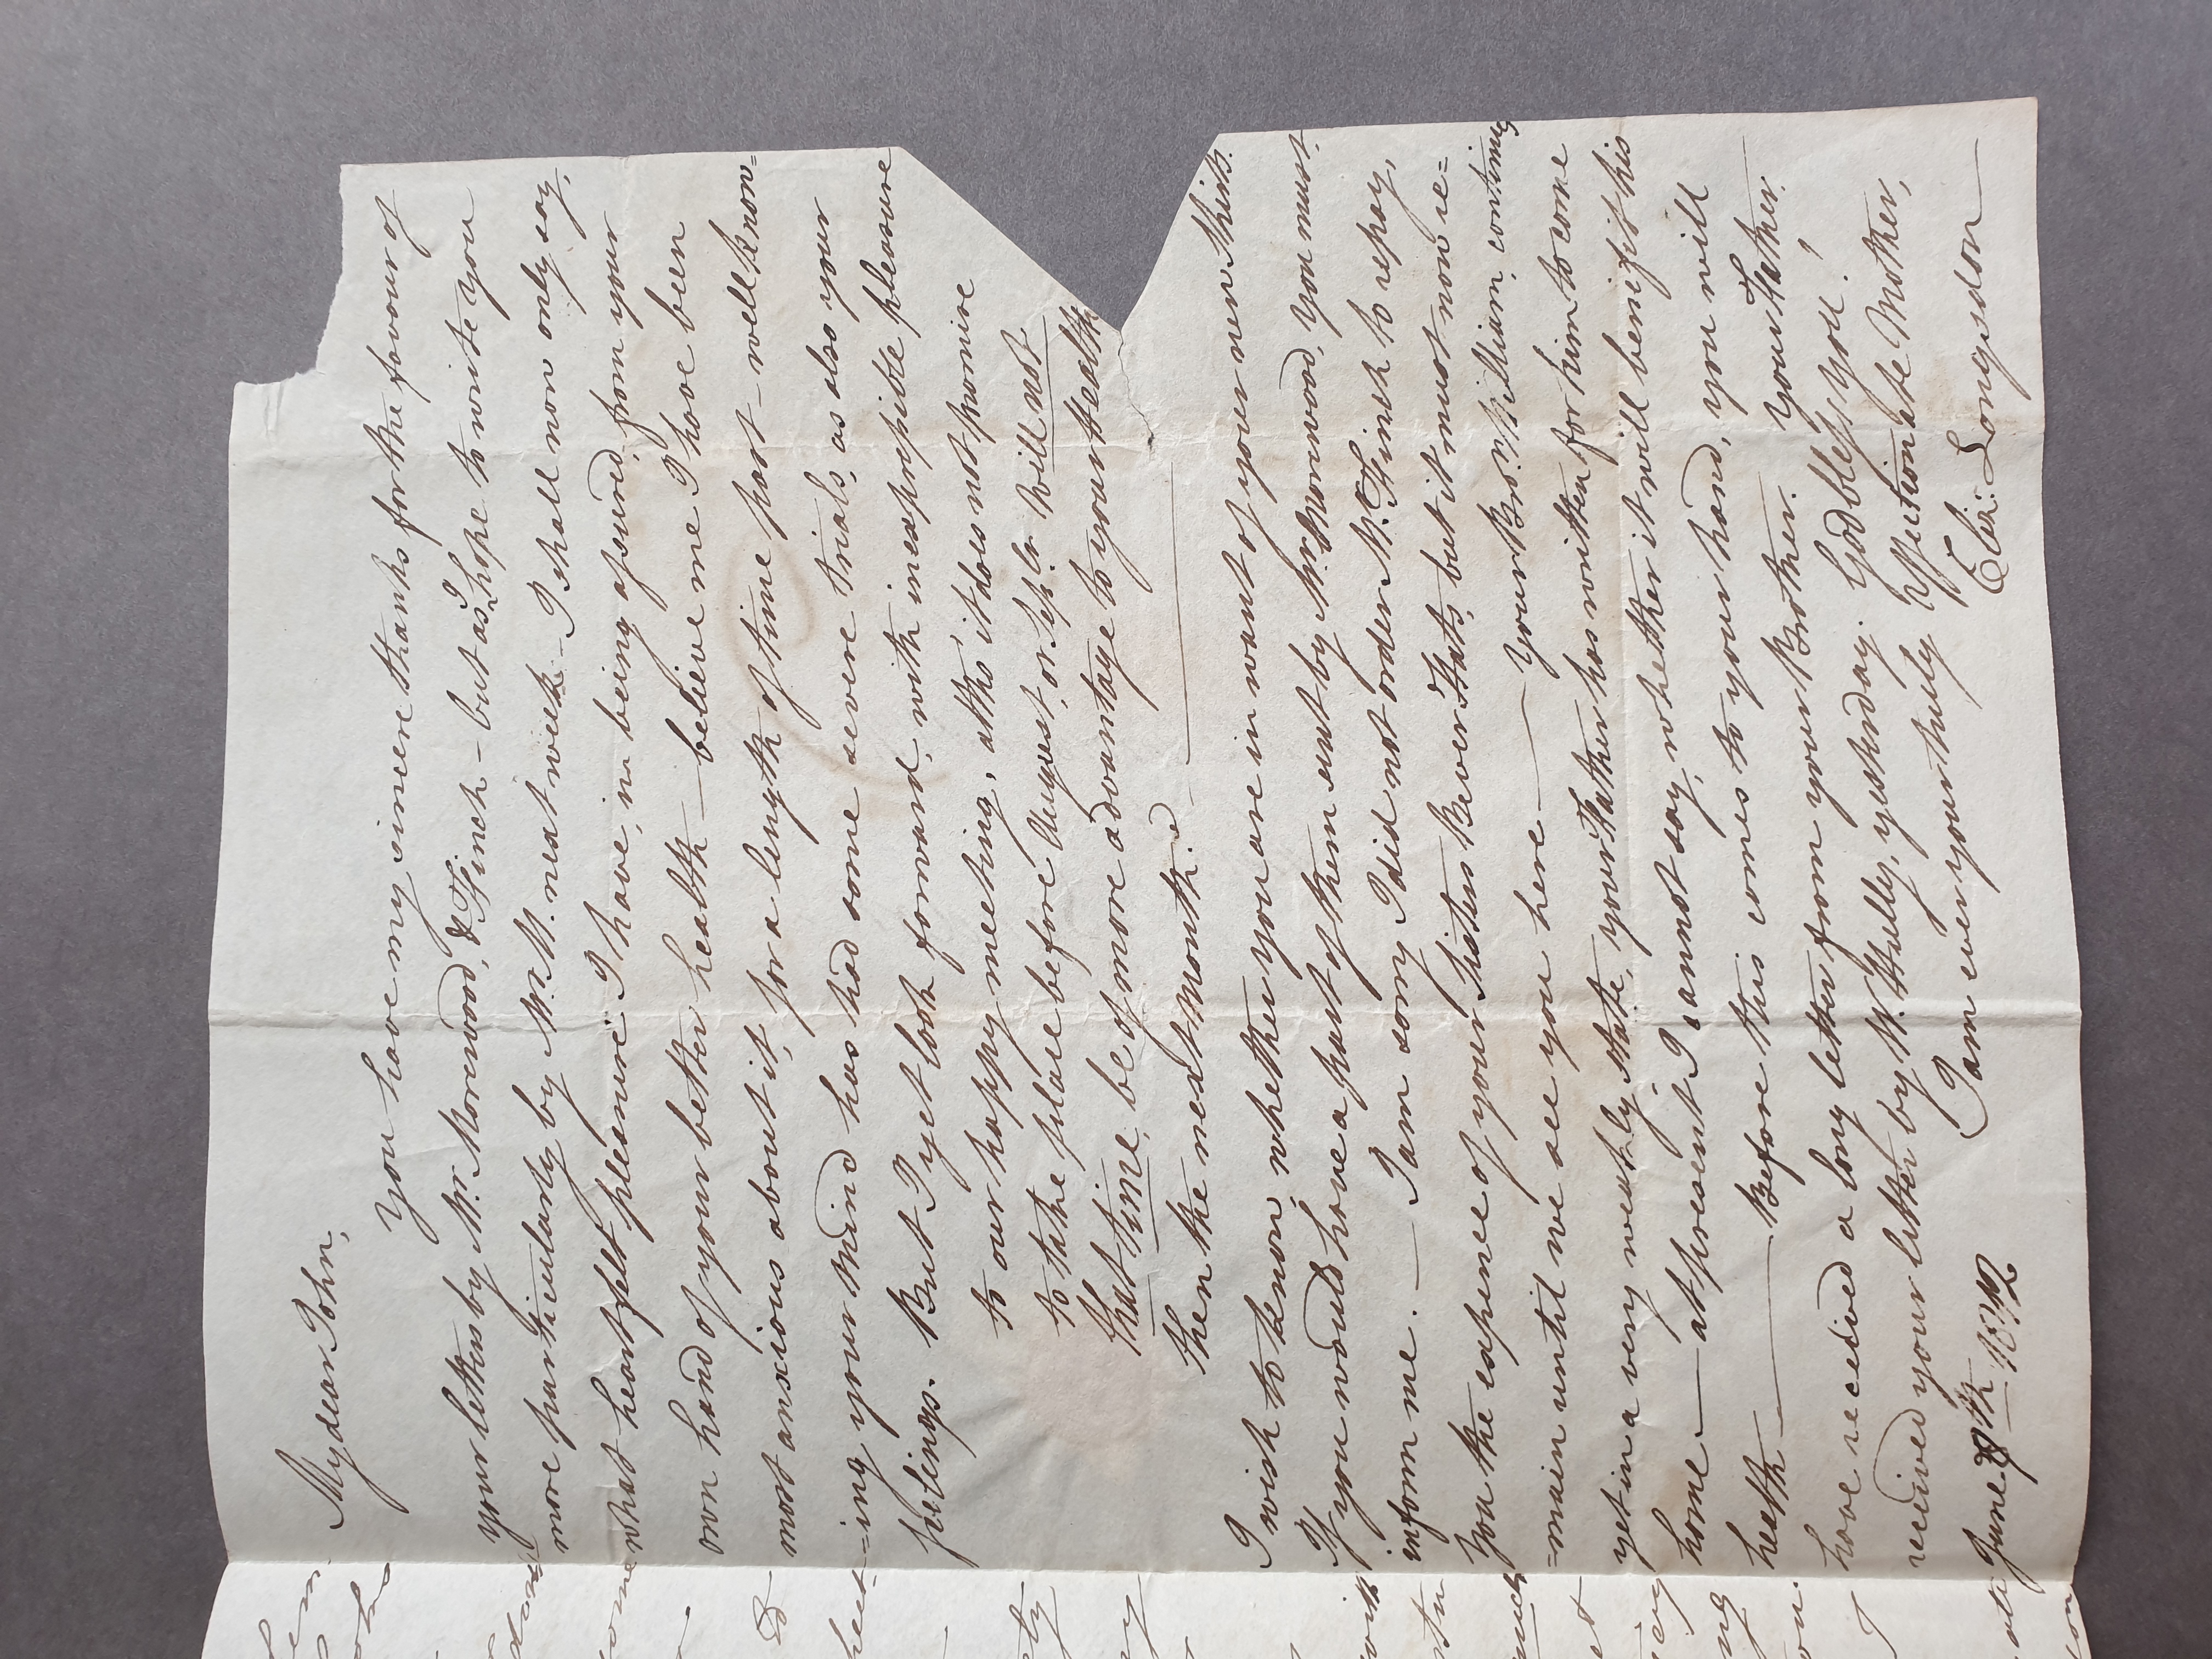 My dear John,
You have my sincere thanks for the favour of
your letters by Mr. Morewood, & Finch – but as I hope to write you
more particularly by Mr. M. next week – I shall now only say,
what heartfelt pleasure I have, in being assured, from your
own hand of your better health – believe me I have been
most anxious about it, for a length of time past – well know=
=ing your Mind has had some severe trials, as also your
feelings. But I yet look forward, with inexpressible pleasure
to our happy meeting, altho' it does not promise
to take place before August, or Sepbr. Will not
that time, be of more advantage to your Health
then the next Month.
I wish to know, whether you are in want of your new Shirts.
If you would have a part of them sent by Mr. Morewood, you must
inform me. — I am sorry I did not order M. Finch to repay,
You the expence of your Sisters Bever Hats, but it must now re=
=main until we see you here — Your Bror. William, continues
yet in a very weakly State, your Father has written for him to come
home — at present I cannot say, whether it will benifit his
health — Before this comes to your hand, you will
have received a long letter from your Brother. Your Father,
received your letter by W. Hully, yesterday. God bless you!
I am ever your truly Affectionate Mother,
June 8th 1812 Eliz: Longsdon